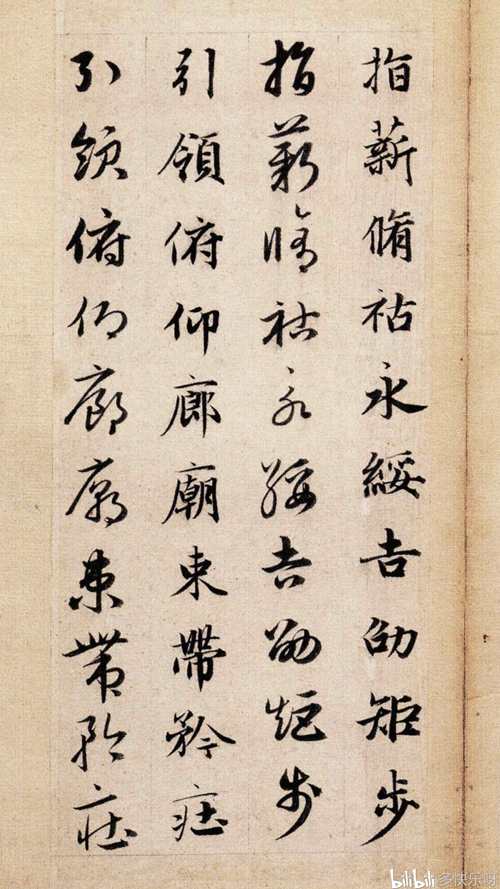 指薪脩祜永綏吉劭矩步
指薪脩祜永綏吉劭矩步
引領俯仰廊廟束帶矜莊
引領俯仰廊廟束帶矜莊
bilibili 多快乐呀